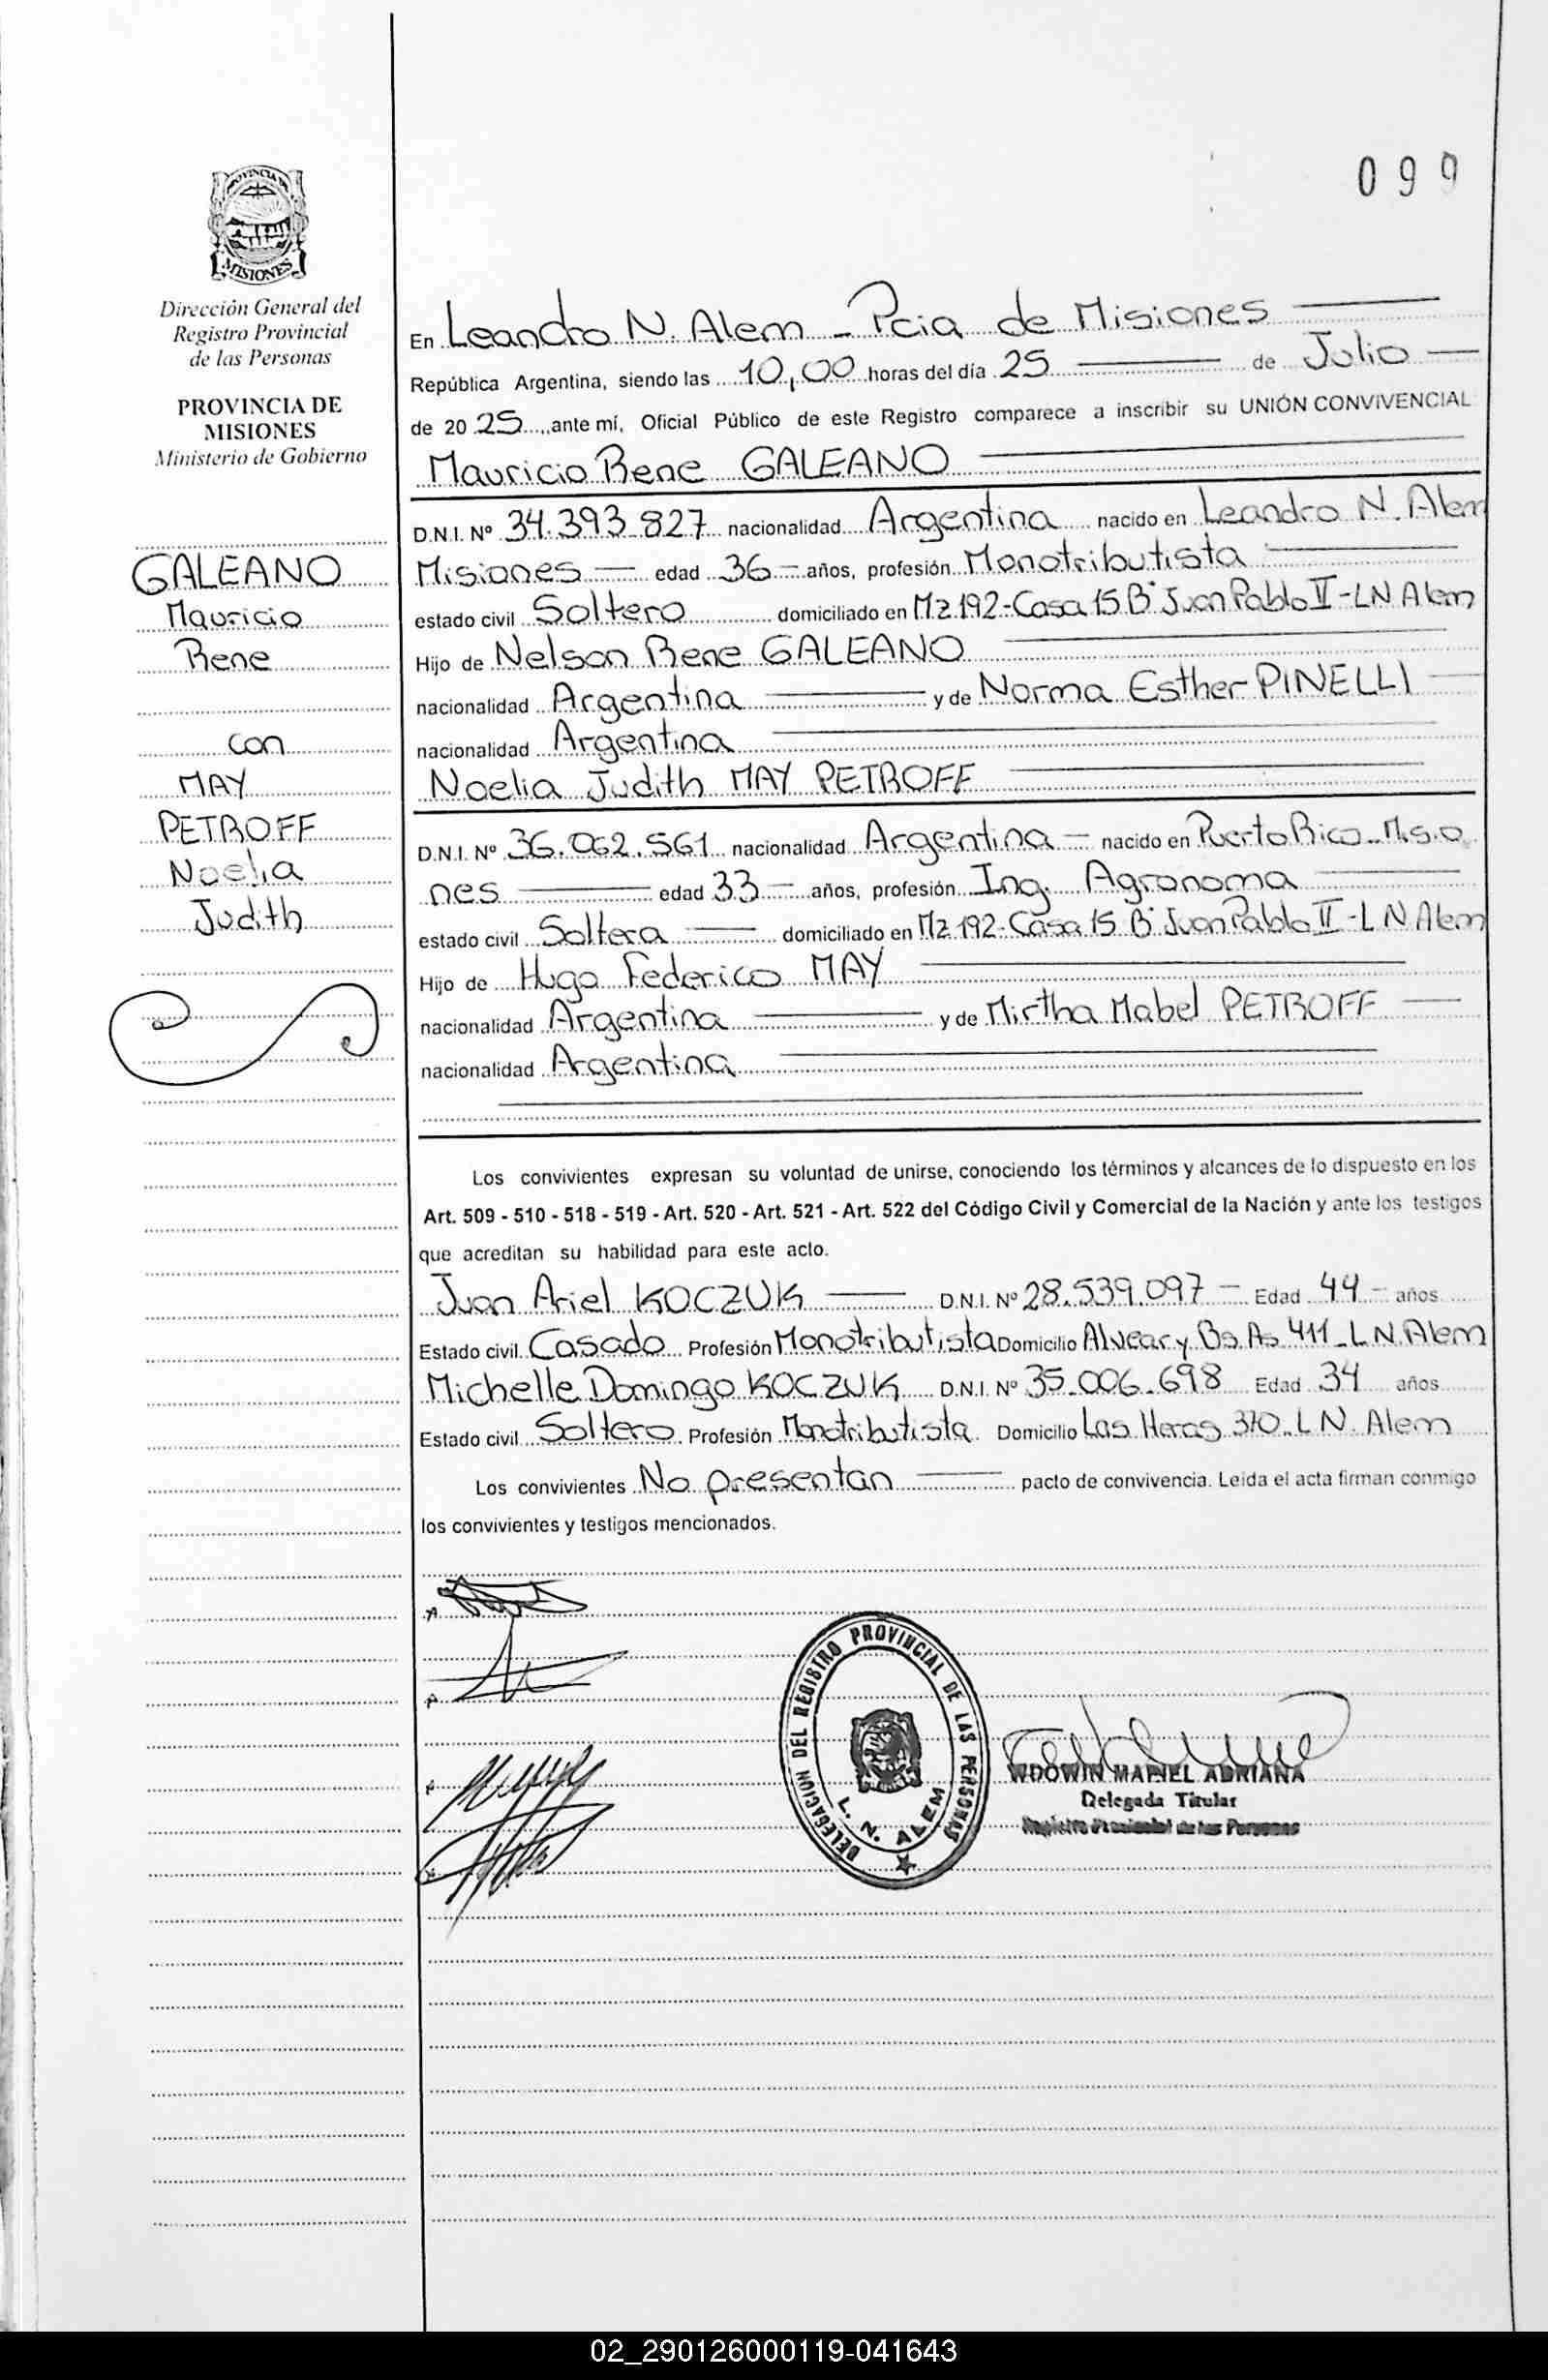 099
PROVINCIA DE
MISIONES
Dirección General del
Registro Provincial
de las Personas
PROVINCIA DE
MISIONES
Ministerio de Gobierno
GALEANO
Mauricio
Rene
con
MAY
PETROFF
Noelia
Judith
En Leandro N. Alem - Pcia de Misiones
República Argentina, siendo las 10,00 horas del día 25 de Julio
de 2025, ante mí, Oficial Público de este Registro comparece a inscribir su UNIÓN CONVIVENCIAL
Mauricio Rene GALEANO
D.N.I. Nº 34.393.827 nacionalidad Argentina nacido en Leandro N. Alem
Misiones edad 36 años, profesión Monotributista
estado civil Soltero domiciliado en Mz 192-Casa 15 B° Juan Pablo II-LN Alem
Hijo de Nelson Rene GALEANO
nacionalidad Argentina y de Norma Esther PINELLI
nacionalidad Argentina
Noelia Judith MAY PETROFF
D.N.I. Nº 36.062.561 nacionalidad Argentina nacido en Puerto Rico - Misio
nes edad 33 años, profesión Ing. Agronoma
estado civil Soltera domiciliado en Mz 192-Casa 15 B° Juan Pablo II-L N Alem
Hijo de Hugo Federico MAY
nacionalidad Argentina y de Mirtha Mabel PETROFF
nacionalidad Argentina
Los convivientes expresan su voluntad de unirse, conociendo los términos y alcances de lo dispuesto en los
Art. 509 - 510 - 518 - 519 - Art. 520 - Art. 521 - Art. 522 del Código Civil y Comercial de la Nación y ante los testigos
que acreditan su habilidad para este acto.
Juan Ariel KOCZUK D.N.I. Nº 28.539.097 Edad 44 años
Estado civil Casado Profesión Monotributista Domicilio Alvear y Bs. As 411 - L N. Alem
Michelle Domingo KOCZUK D.N.I. Nº 35.006.698 Edad 34 años
Estado civil Soltero Profesión Monotributista Domicilio Las Heras 370. L N. Alem
Los convivientes No presentan pacto de convivencia. Leida el acta firman conmigo
los convivientes y testigos mencionados.
DELEGACION DEL REGISTRO PROVINCIAL DE LAS PERSONAS
L. N. ALEM
WDOWIN MARIEL ADRIANA
Delegada Titular
Registro Provincial de las Personas
02_290126000119-041643